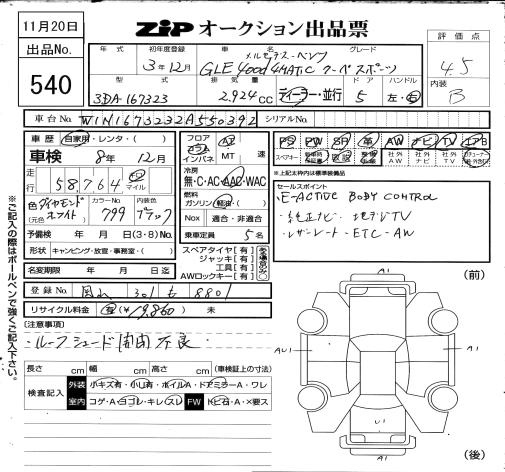 11月20日
ZIP オークション出品票
出品No.
540
評価点
4.5
内装
B
年式 初年度登録 車名 グレード
3年12月 メルセデス・ベンツ
GLE400d 4MATIC クーペスポーツ
型式 排気量 ドア ハンドル
3DA-167323 2,924cc ディーラー・並行 5 左・右
車台No. W1N1673232A550392 シリアルNo.
車歴 自家用・レンタ・( )
車検 8年 12月
走行 58,764 km マイル
色 ダイヤモンドホワイト (元色) カラーNo. 799 内装色 ブラック
予備検 年 月 日(3・8)No.
形状 キャンピング・放宣・事務室・( )
名変期限 年 月 日迄
登録No. 301 も 8801
リサイクル料金 (¥19,860) 未
フロア コラム インパネ AT MT 速
冷房 無・C・AC・AAC・WAC
燃料 ガソリン・軽油・( )
Nox 適合・非適合
乗車定員 5名
スペアタイヤ[有]
ジャッキ[有]
工具[有]
AWロックキー[有]
PS PW SR 革 AW ナビ TV
スペアキー 社外AW 社外ナビ 社外TV
※上記太枠内は標準装備品
セールスポイント
・E-ACTIVE BODY CONTROL
・純正ナビ・地デジTV
・レザーシート・ETC・AW
[注意事項]
・ルーフシェード開閉不良
長さ cm 幅 cm 高さ cm (車検証上の寸法)
検査記入 外装 小キズ有・小凹有・ボイルA・ドアミラーA・ワレ
室内 コゲ・A・ヨゴレ・キレ・スレ FW トビ石・A・×要ス
ご記入の際はボールペンで強くご記入下さい。
(前)
A1
AU1 A1
U1
A1
(後)